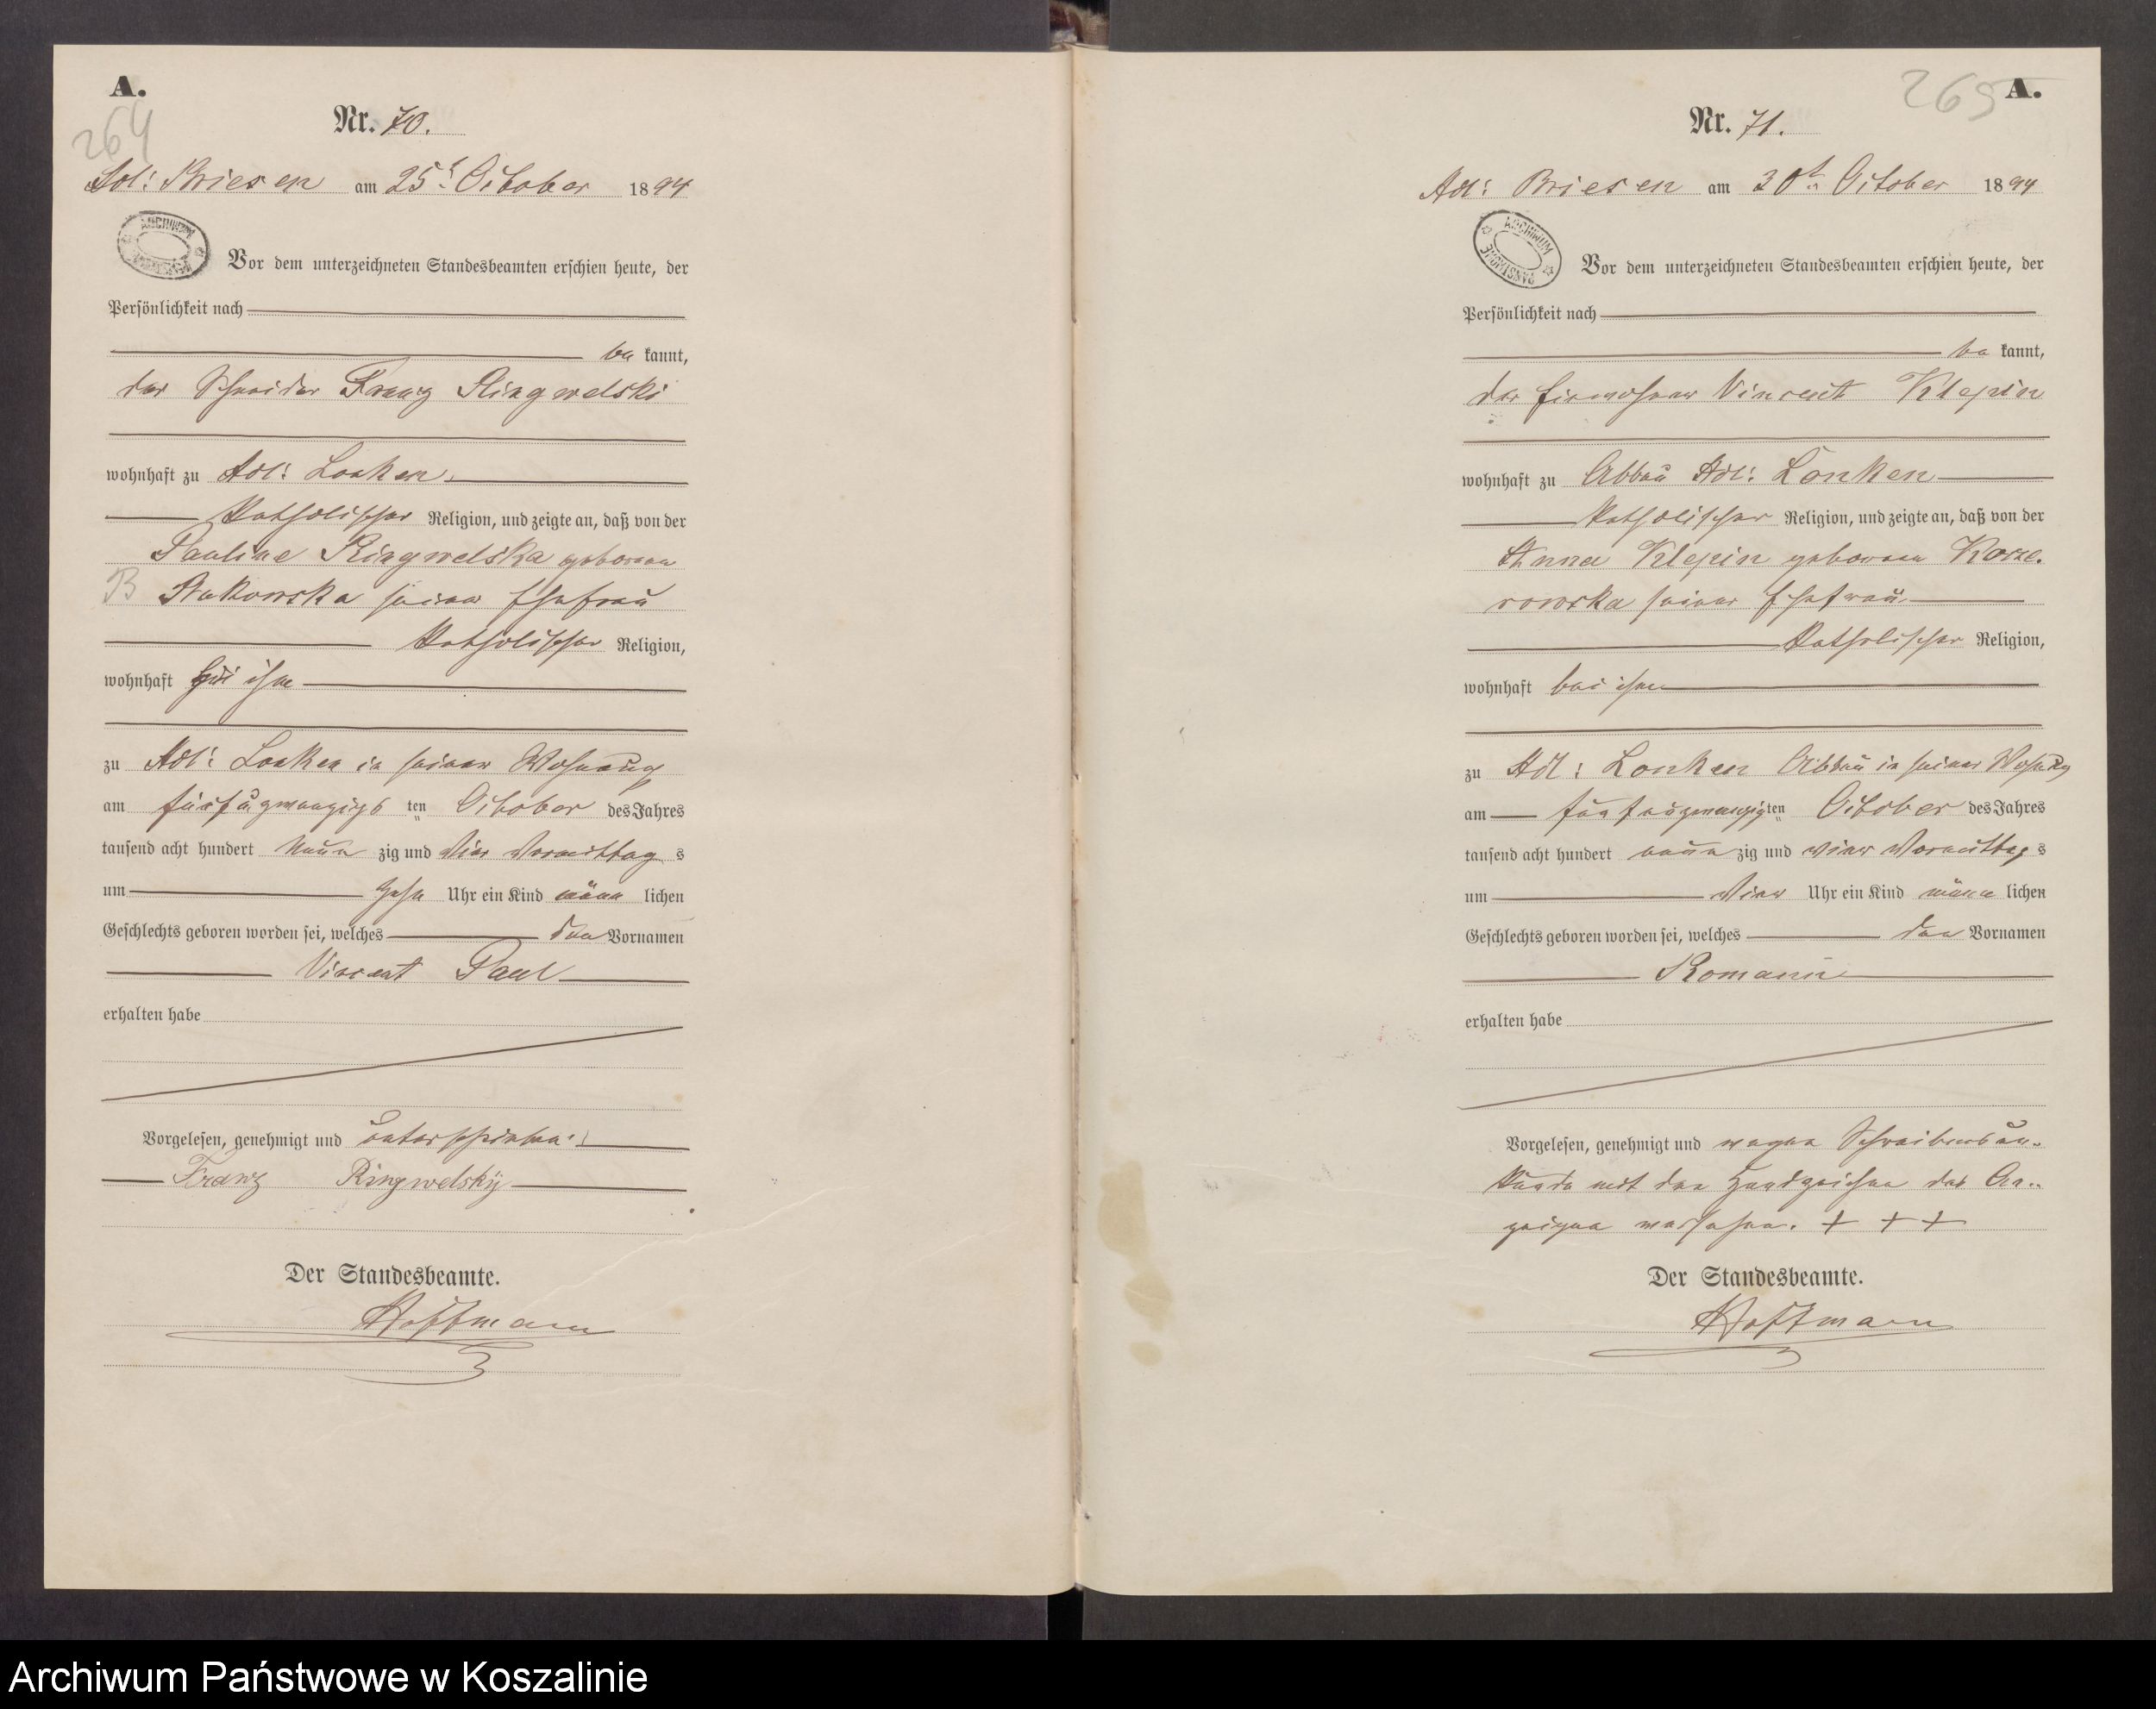 A.
264
Nr. 70.
Adl: Briesen am 25t October 1894
ARCHIWUM
Vor dem unterzeichneten Standesbeamten erschien heute, der
Persönlichkeit nach
be kannt,
der Schneider Franz Ringwelski
wohnhaft zu Adl: Lonken,
Katholischer Religion, und zeigte an, daß von der
Pauline Ringwelska geborene
B Kukowska seiner Ehefrau
Katholischer Religion,
wohnhaft bei ihm
zu Adl: Lonken in seiner Wohnung
am fünfundzwanzigs ten October des Jahres
tausend acht hundert Neun zig und Vier Vormittag s
um Zehn Uhr ein Kind männ lichen
Geschlechts geboren worden sei, welches den Vornamen
Vincent Paul
erhalten habe
Vorgelesen, genehmigt und unterschrieben.
Franz Ringwelskÿ
Der Standesbeamte.
Hoffmann
A.
265
Nr. 71.
Adl: Briesen am 30t October 1894
ARCHIWUM PAŃSTWOWE
Vor dem unterzeichneten Standesbeamten erschien heute, der
Persönlichkeit nach
be kannt,
der Einwohner Vincent Klepin
wohnhaft zu Abbau Adl: Lonken
Katholischer Religion, und zeigte an, daß von der
Anna Klepin geborene
seiner Ehefrau
Katholischer Religion,
wohnhaft bei ihm
zu Adl: Lonken Abbau in seiner Wohnung
am fünfundzwanzigten October des Jahres
tausend acht hundert neun zig und vier Vormittag s
um Vier Uhr ein Kind männ lichen
Geschlechts geboren worden sei, welches den Vornamen
Romann
erhalten habe
Vorgelesen, genehmigt und wegen Schreibensun-
kunde mit den Handzeichen des An-
zeigen versehen. + + +
Der Standesbeamte.
Hoffmann
Archiwum Państwowe w Koszalinie